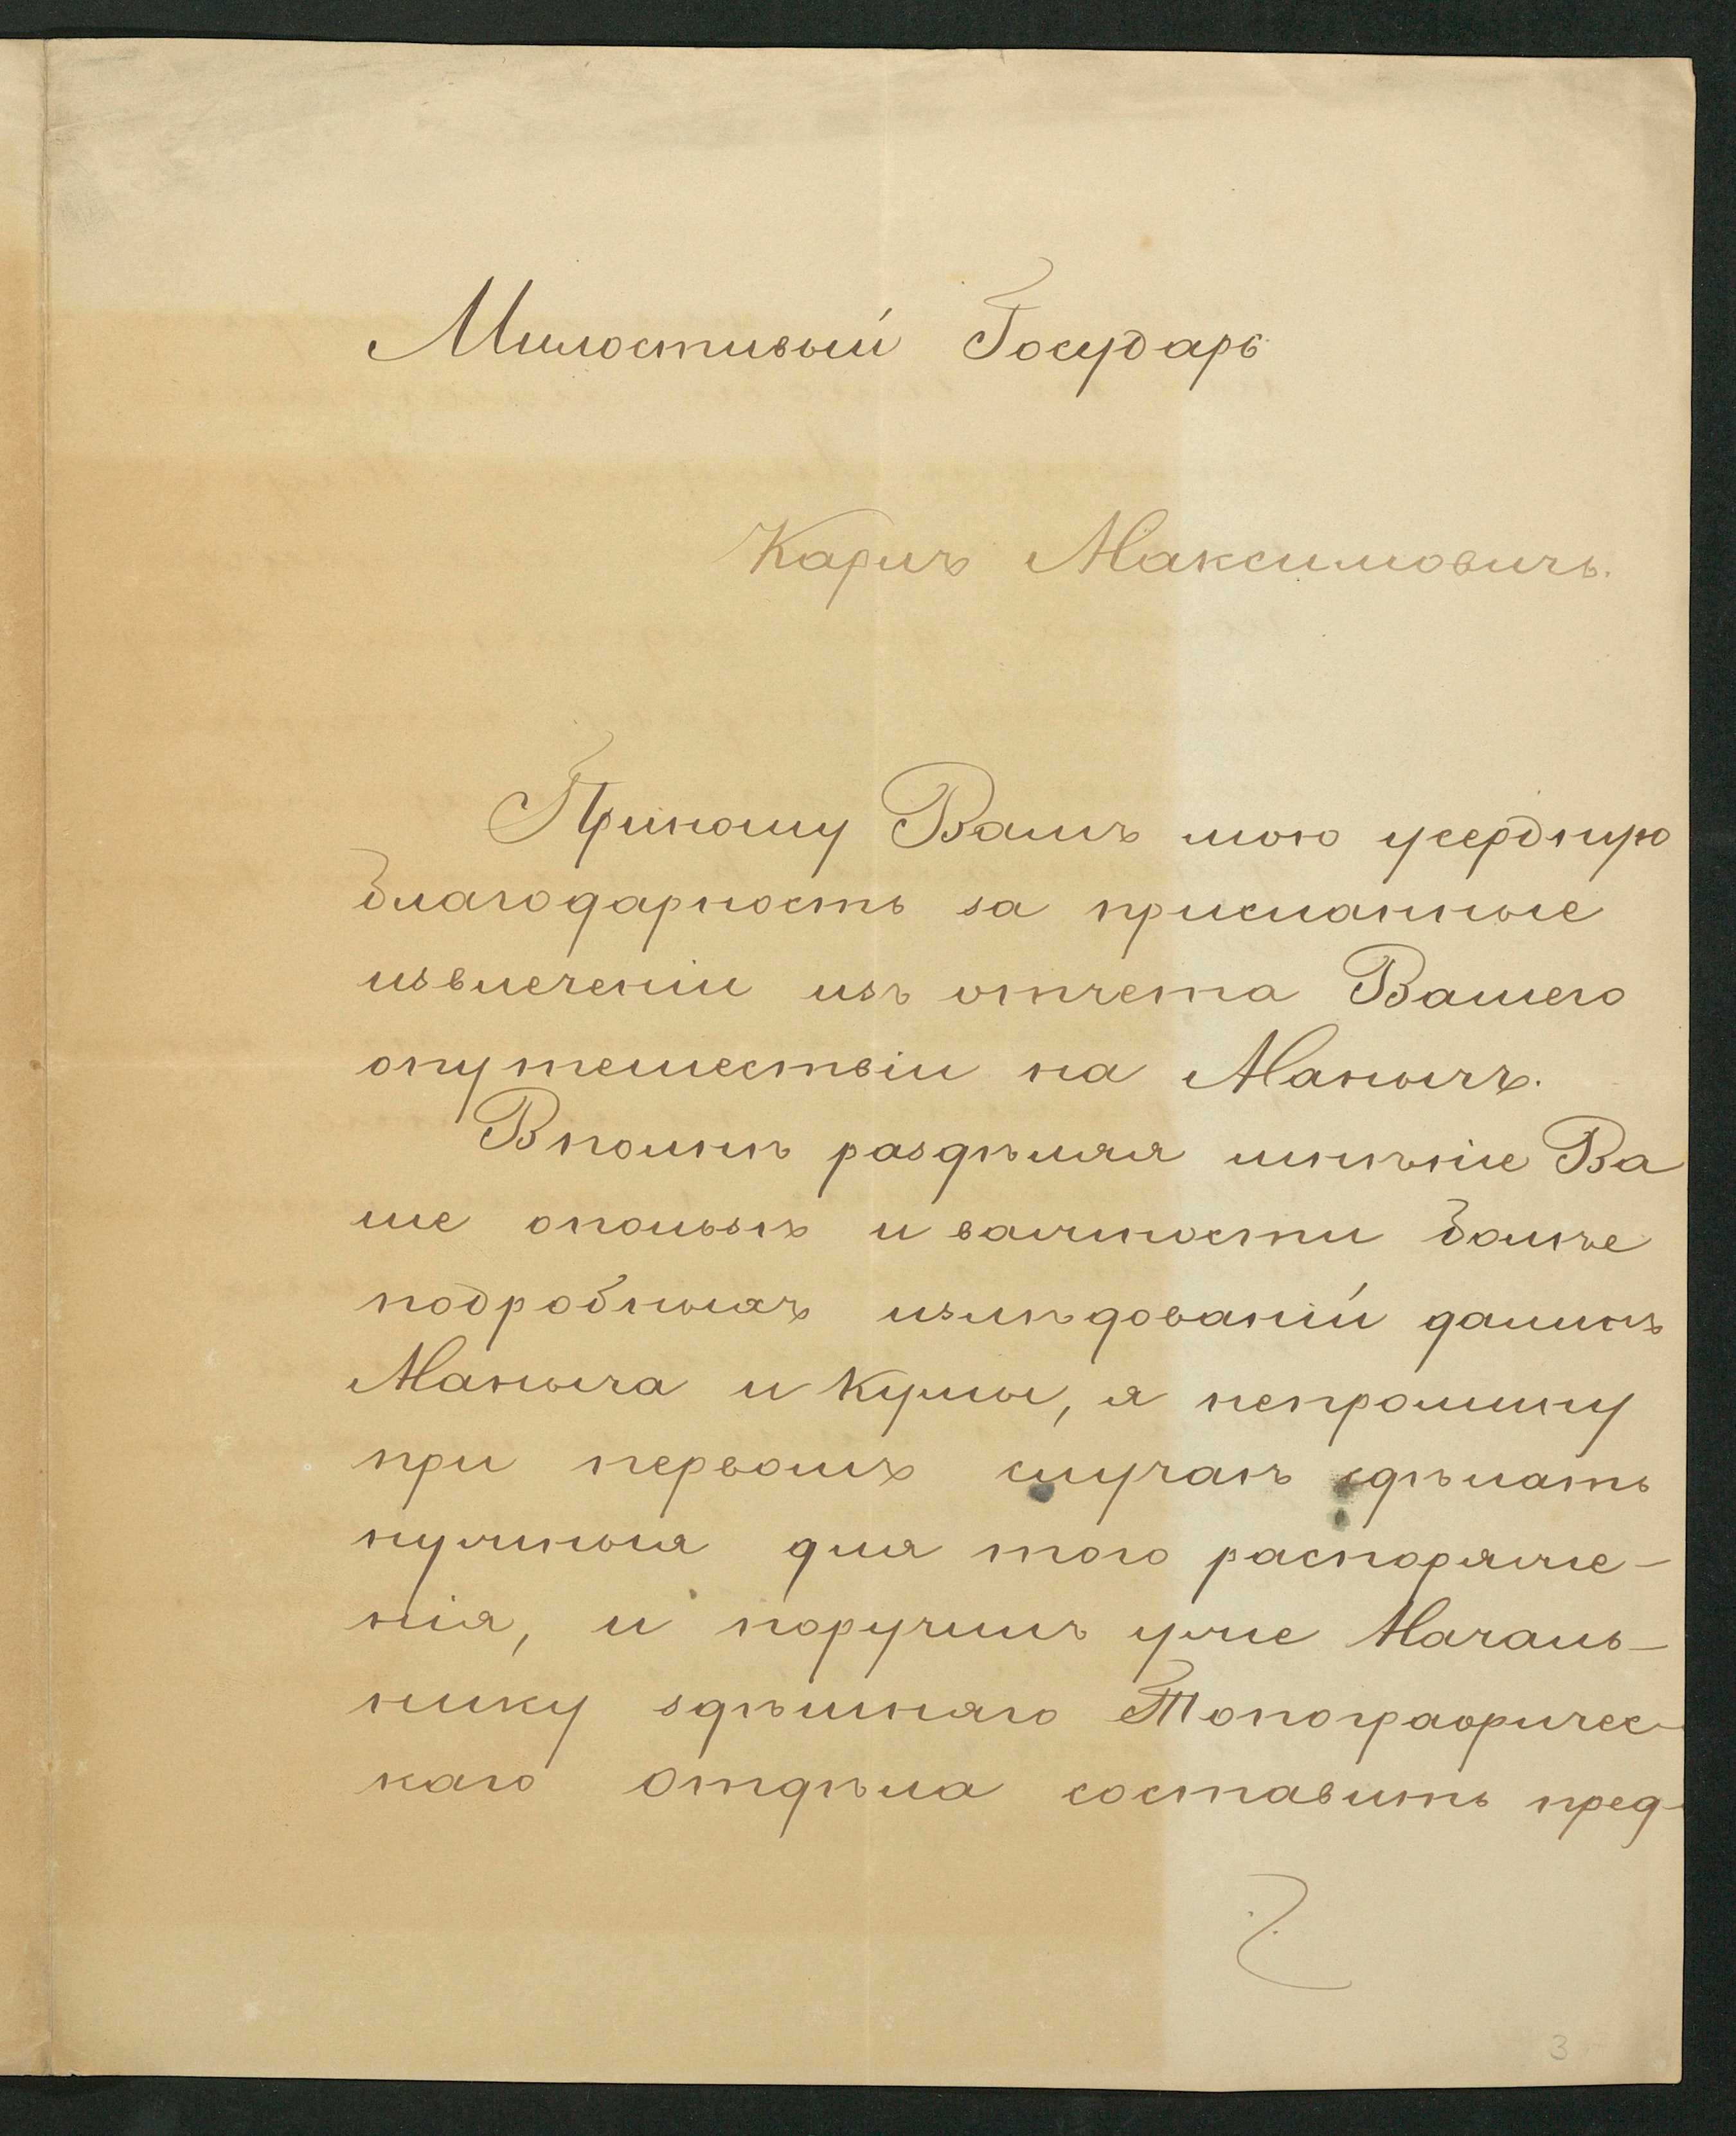 Милостивый Государь
Карлъ Максимовичъ.
Приношу Вамъ мою усердную
благодарность за присланные
извлеченіи изъ отчета Вашего
опутешествіи на Манычъ.
Вполнѣ раздѣляя мнѣніе Ва
ше опользѣ и важности болѣе
подробныхъ изслѣдованій долинъ
Маныча и Кумы, я непромину
при первомъ случаѣ сдѣлать
нужныя для того распоряже-
нія, и поручилъ уже Началь-
нику здѣшняго Топографичес-
каго Отдѣла составить пред-
3